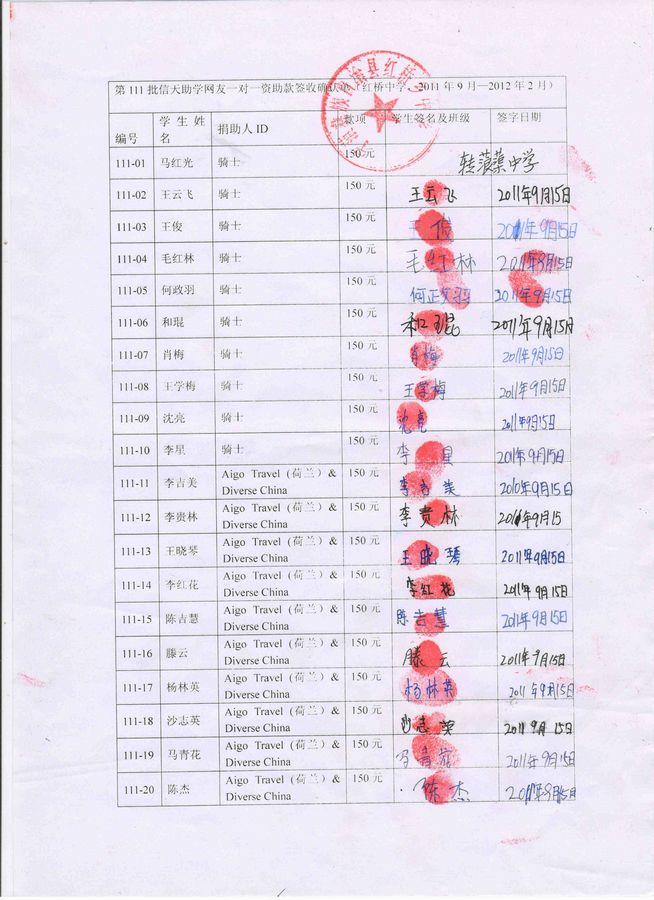 第 111 批信天助学网友一对一资助款签收确认单（红桥中学 2011 年 9 月—2012 年 2 月）
编号 学生姓名 捐助人 ID 款项 学生签名及班级 签字日期
111-01 马红光 骑士 150 元 转蒗蕖中学
111-02 王云飞 骑士 150 元 王云飞 2011年9月15日
111-03 王俊 骑士 150 元 王俊 2011年9月15日
111-04 毛红林 骑士 150 元 毛红林 2011年9月15日
111-05 何政羽 骑士 150 元 何正文羽 2011年9月15日
111-06 和琨 骑士 150 元 和琨 2011年9月15日
111-07 肖梅 骑士 150 元 肖梅 2011年9月15日
111-08 王学梅 骑士 150 元 王学梅 2011年9月15日
111-09 沈亮 骑士 150 元 沈亮 2011年9月15日
111-10 李星 骑士 150 元 李星 2011年9月15日
111-11 李吉美 Aigo Travel (荷兰) & Diverse China 150 元 李吉美 2010年9月15日
111-12 李贵林 Aigo Travel (荷兰) & Diverse China 150 元 李贵林 2011年9月15
111-13 王晓琴 Aigo Travel (荷兰) & Diverse China 150 元 王晓琴 2011年9月15日
111-14 李红花 Aigo Travel (荷兰) & Diverse China 150 元 李红花 2011年9月15日
111-15 陈吉慧 Aigo Travel (荷兰) & Diverse China 150 元 陈吉慧 2011年9月15日
111-16 滕云 Aigo Travel (荷兰) & Diverse China 150 元 滕云 2011年9月15日
111-17 杨林英 Aigo Travel (荷兰) & Diverse China 150 元 杨林英 2011年9月15日
111-18 沙志英 Aigo Travel (荷兰) & Diverse China 150 元 沙志英 2011年9月15日
111-19 马青花 Aigo Travel (荷兰) & Diverse China 150 元 马青花 2011年9月15日
111-20 陈杰 Aigo Travel (荷兰) & Diverse China 150 元 陈杰 2011年9月15日